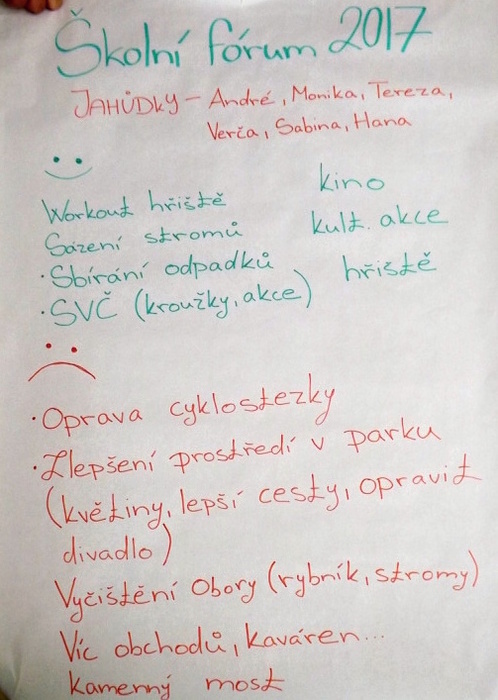 Školní fórum 2017
JAHŮDKY – André, Monika, Tereza,
Verča, Sabina, Hana
Workout hřiště
Sázení stromů
· Sbírání odpadků
· SVČ (kroužky, akce)
kino
kult. akce
hřiště
· Oprava cyklostezky
· Zlepšení prostředí v parku
(květiny, lepší cesty, opravit
divadlo)
Vyčištění Obory (rybník, stromy)
Víc obchodů, kaváren...
kamenný most